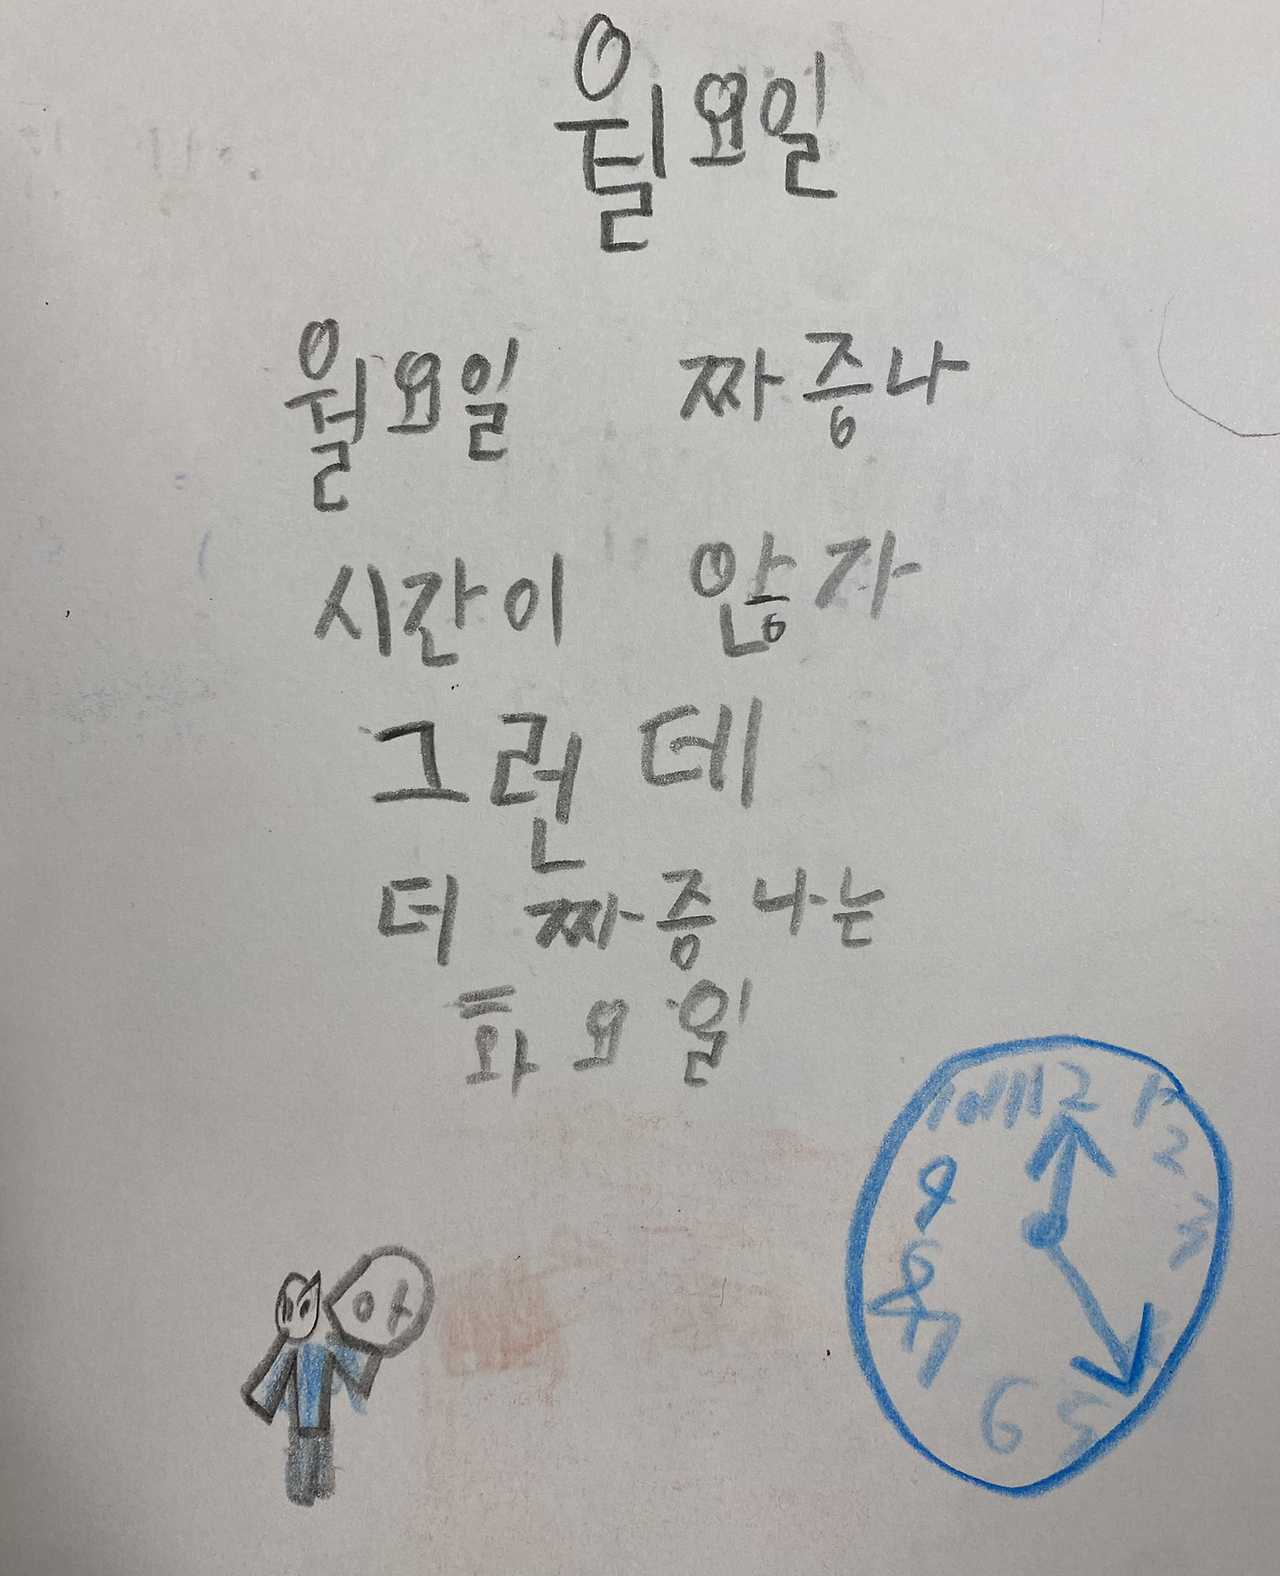 월요일
월요일 짜증나
시간이 않자
그런데
더 짜증나는
화요일
아
10 11 12 1
2
9
3
8
7
6 5